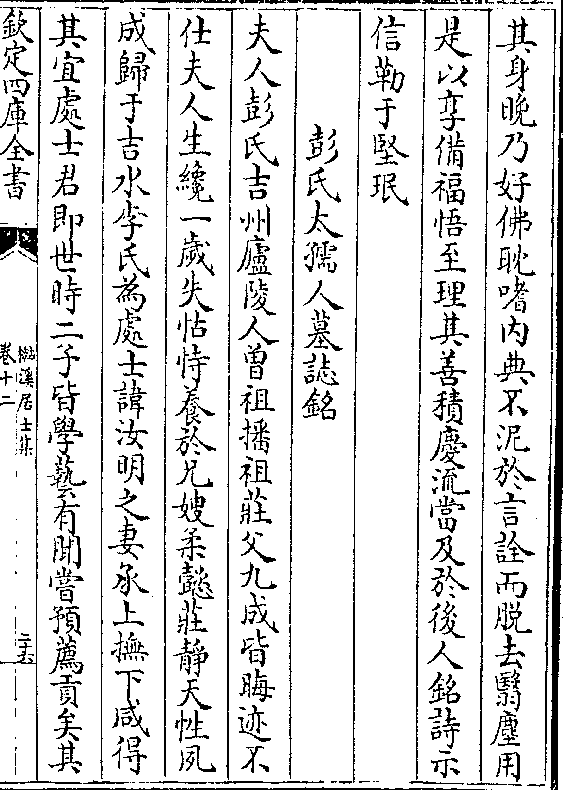 其身晚乃好佛耽嗜内典不泥於言詮而脱去翳塵用
是以享備福悟至理其善積慶流當及於後人銘詩示
信勒于堅珉
彭氏太孺人墓誌銘
夫人彭氏吉州廬陵人曾祖播祖莊父九成皆晦迹不
仕夫人生纔一歲失怙恃養於兄嫂柔懿莊静天性夙
成歸于吉水李氏為處士諱汝明之妻承上撫下咸得
其宜處士君即世時二子皆學藝有聞嘗預薦貢矣其
欽定四庫全書
溪居士集
卷十二